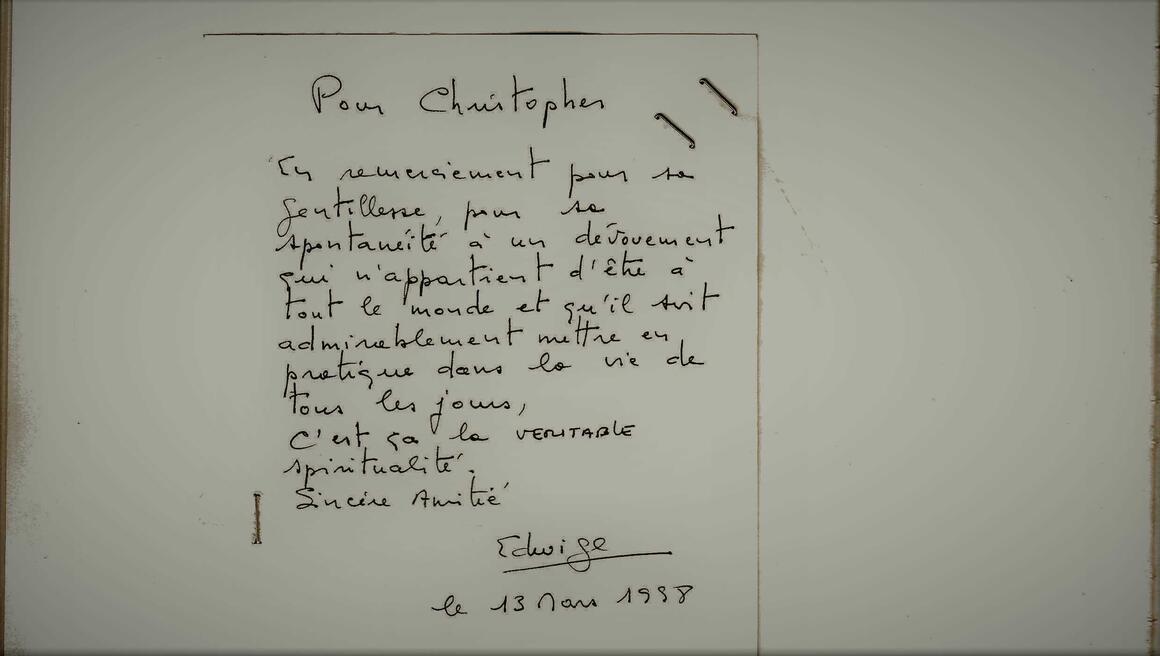 Pour Christopher
En remerciement pour sa
gentillesse, pour sa
spontanéité à un dévouement
qui n'appartient d'être à
tout le monde et qu'il sait
admirablement mettre en
pratique dans la vie de
tous les jours,
C'est ça la VERITABLE
spiritualité.
Sincère Amitié
Edwige
le 13 Mars 1998